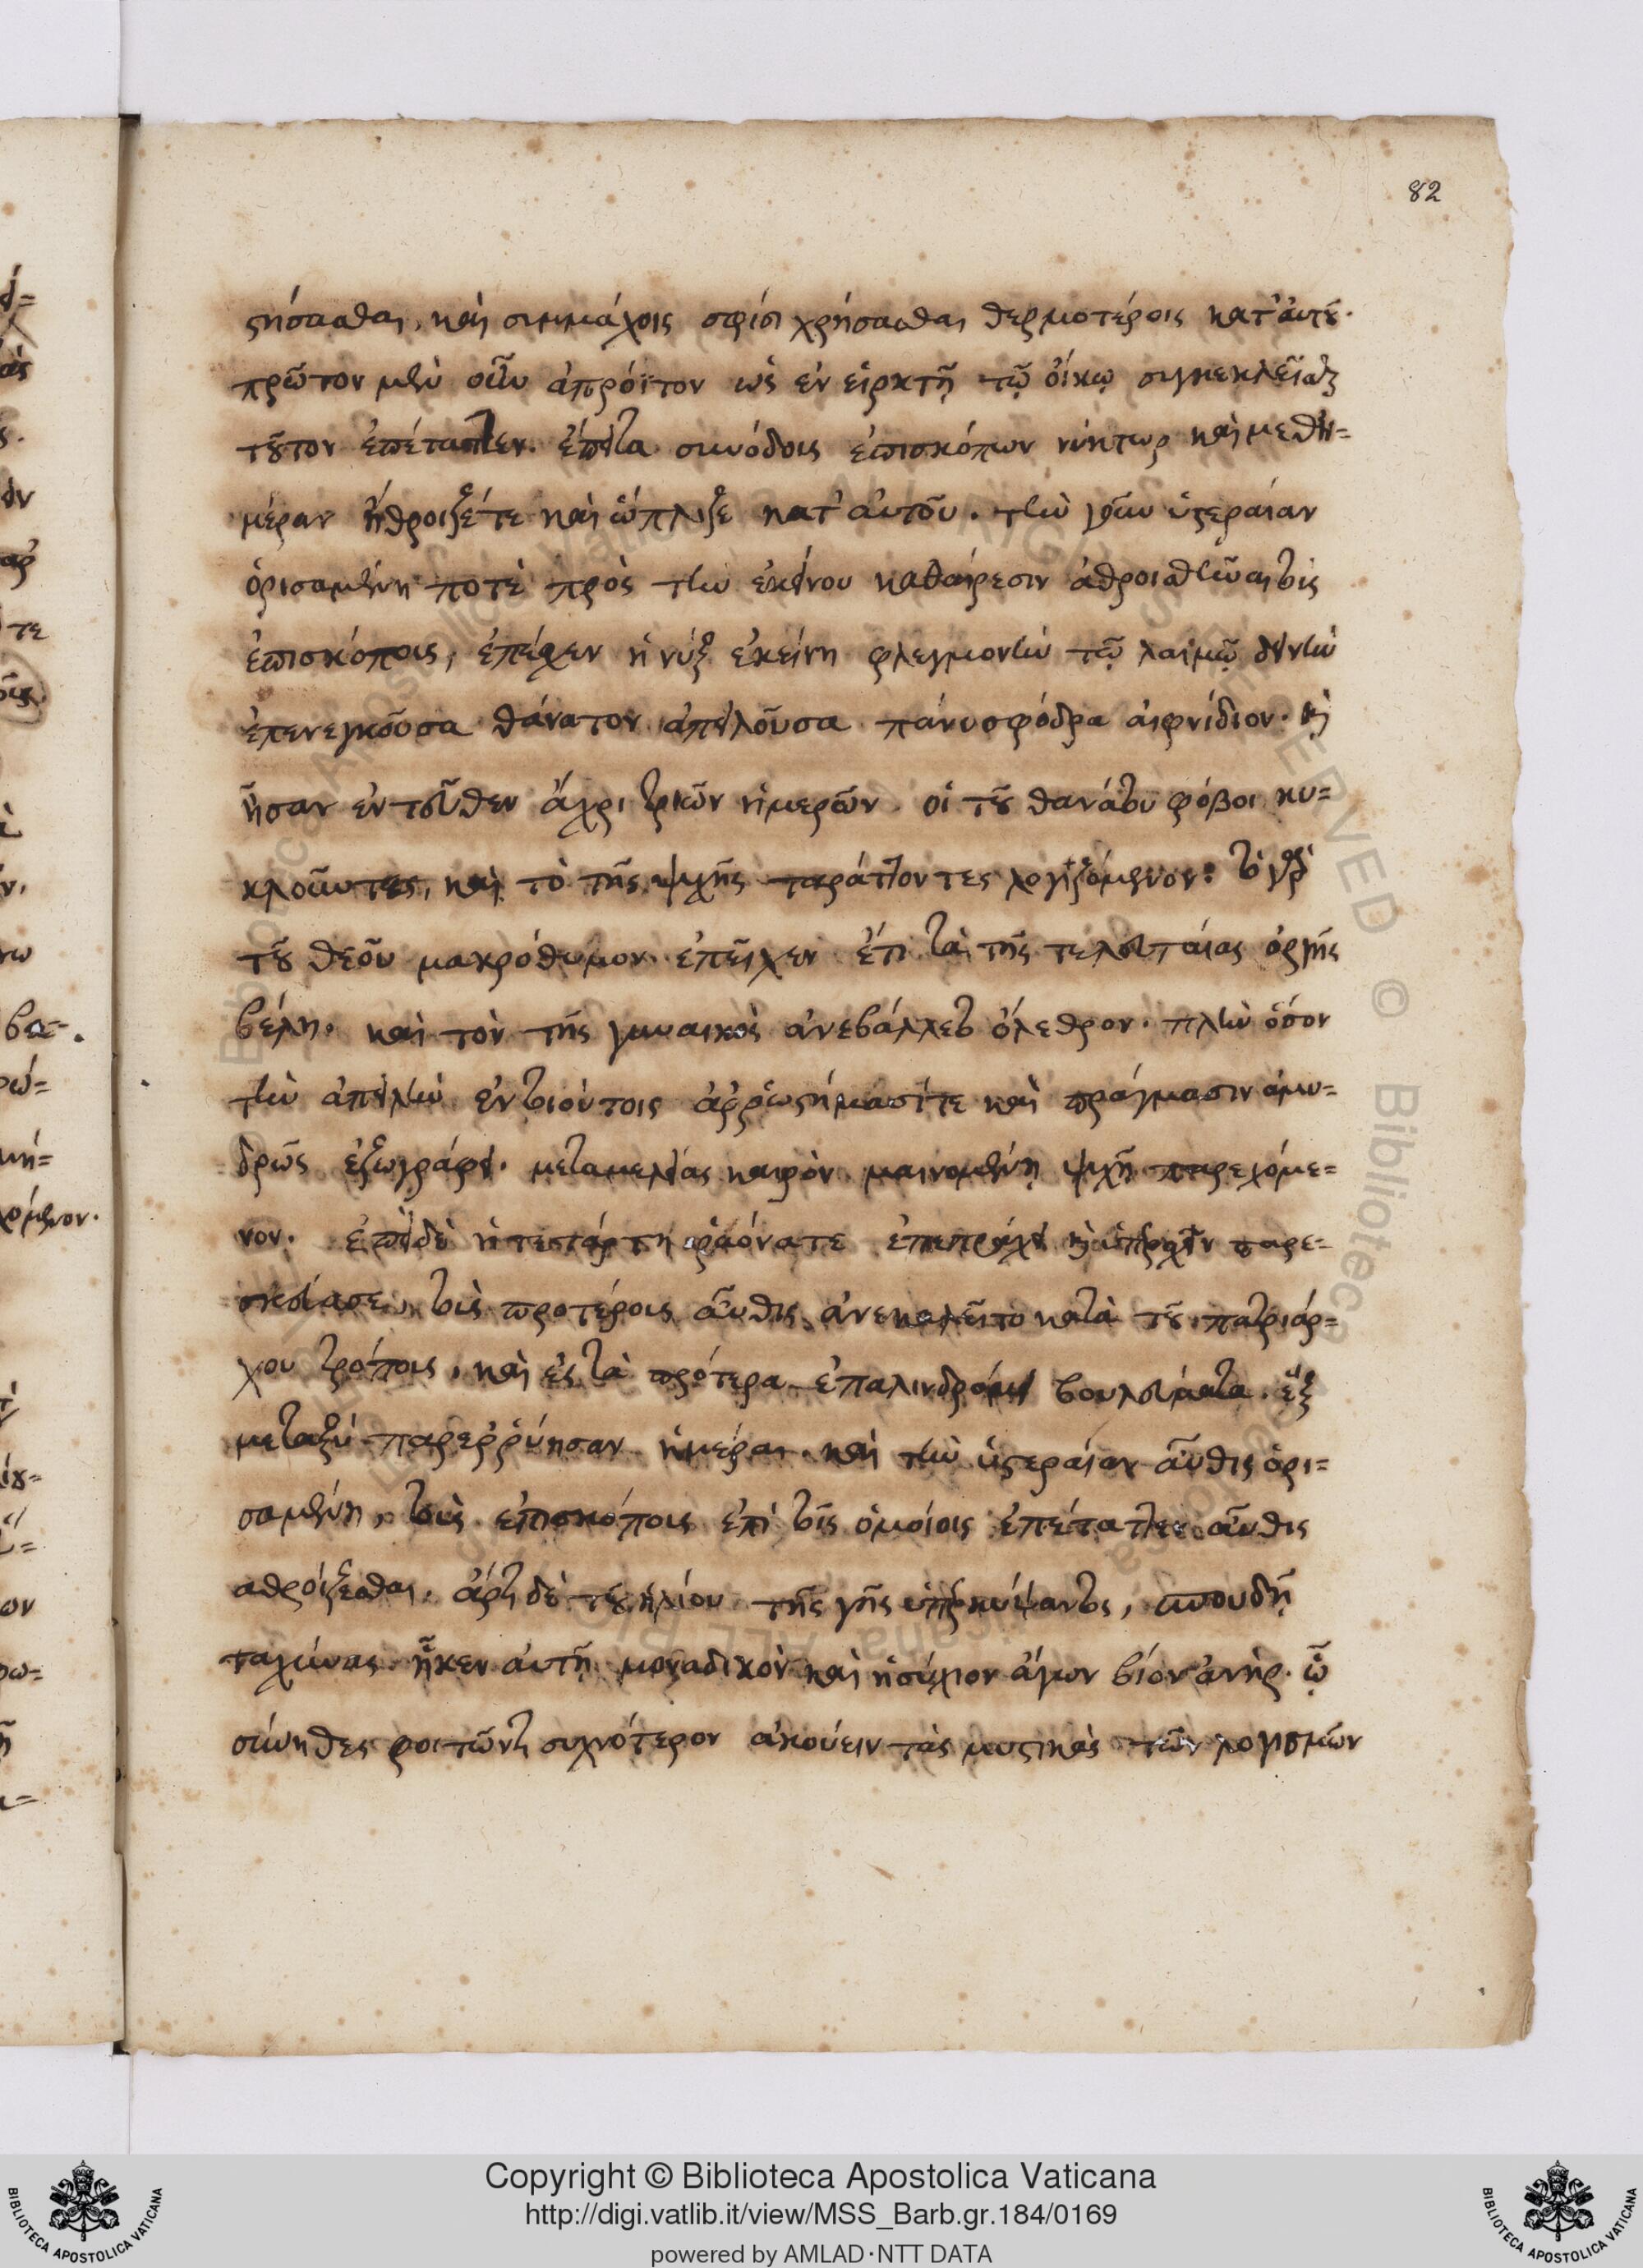 82
στήσασθαι, καὶ συμμάχοις σφίσι χρήσασθαι θερμοτέροις κατ' αὐτοῦ.
πρῶτον μὲν οὖν ἀπρόϊτον ὡς ἐν εἱρκτῇ τῷ οἴκῳ συγκεκλεῖσθαι
τοῦτον ἐπέταττεν. ἔπειτα συνόδοις ἐπισκόπων νύκτωρ καὶ μεθη=
μέραν ἤθροιζέ τε καὶ ὥπλιζε κατ' αὐτοῦ. τὴν γοῦν ὑστεραίαν
ὁρισαμένη ποτὲ πρὸς τὴν ἐκείνου καθαίρεσιν ἀθροισθῆναι τοῖς
ἐπισκόποις, ἐπέσχεν ἡ νὺξ ἐκείνη φλεγμονὴν τῷ λαιμῷ δεινὴν
ἐπενεγκοῦσα θάνατον ἀπειλοῦσα πάνυ σφόδρα αἰφνίδιον. καὶ
ἦσαν ἐντεῦθεν ἄχρι τριῶν ἡμερῶν οἱ τοῦ θανάτου φόβοι κυ=
κλοῦντες, καὶ τὸ τῆς ψυχῆς ταράττοντες λογιζόμενον. τὸ γὰρ
τοῦ θεοῦ μακρόθυμον ἐπεῖχεν ἔτι τὰ τῆς τελευταίας ὀργῆς
βέλη. καὶ τὸν τῆς γυναικὸς ἀνεβάλλετο ὄλεθρον. πλὴν ὅσον
τὴν ἀπειλὴν ἐν τοιούτοις ἀῤῥωστήμασί τε καὶ πράγμασιν ἀμυ=
δρῶς ἐζωγράφει. μεταμελείας καιρὸν μαινομένῃ ψυχῇ παρεχόμε=
νον. ἐπεὶ δὲ ἡ τετάρτη ῥάονά τε ἐπεπράχει καὶ ὑπάρχειν παρε=
σκεύασε, τοῖς προτέροις αὖθις ἀνεκαλεῖτο κατὰ τοῦ πατριάρ=
χου τρόποις, καὶ ἐς τὰ πρότερα ἐπαλινδρόμει βουλεύματα. ἓξ
μεταξὺ παρεῤῥύησαν ἡμέραι. καὶ τὴν ὑστεραίαν αὖθις ὁρι=
σαμένη, τοῖς ἐπισκόποις ἐπὶ τοῖς ὁμοίοις ἐπέταττεν αὖθις
ἀθροίζεσθαι. ἄρτι δὲ τοῦ ἡλίου τῆς γῆς ὑπερκύψαντος, σπουδῇ
ταχύνας ἧκεν αὐτῇ μοναδικὸν καὶ ἡσύχιον ἄγων βίον ἀνὴρ. ᾧ
σύνηθες φοιτῶντι συχνότερον ἀκούειν τὰς μυστικὰς τῶν λογισμῶν
Copyright © Biblioteca Apostolica Vaticana
http://digi.vatlib.it/view/MSS_Barb.gr.184/0169
powered by AMLAD·NTT DATA